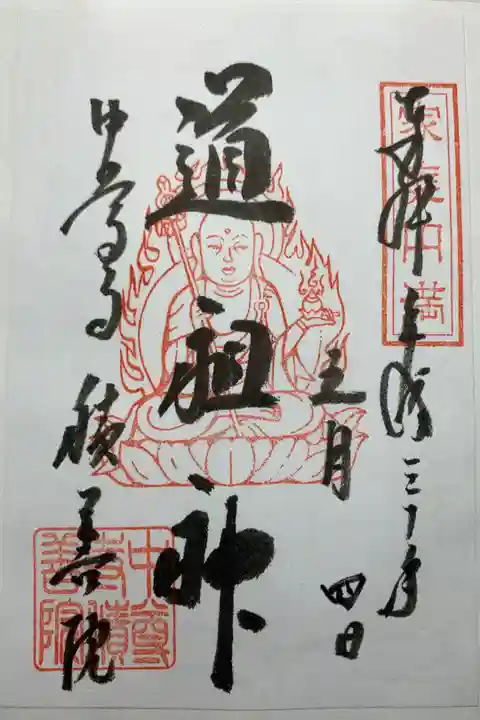 家庭円満
奉拝 平成三十年
五月 四日
道祖神
中尊寺 積善院
中尊
寺積
善院